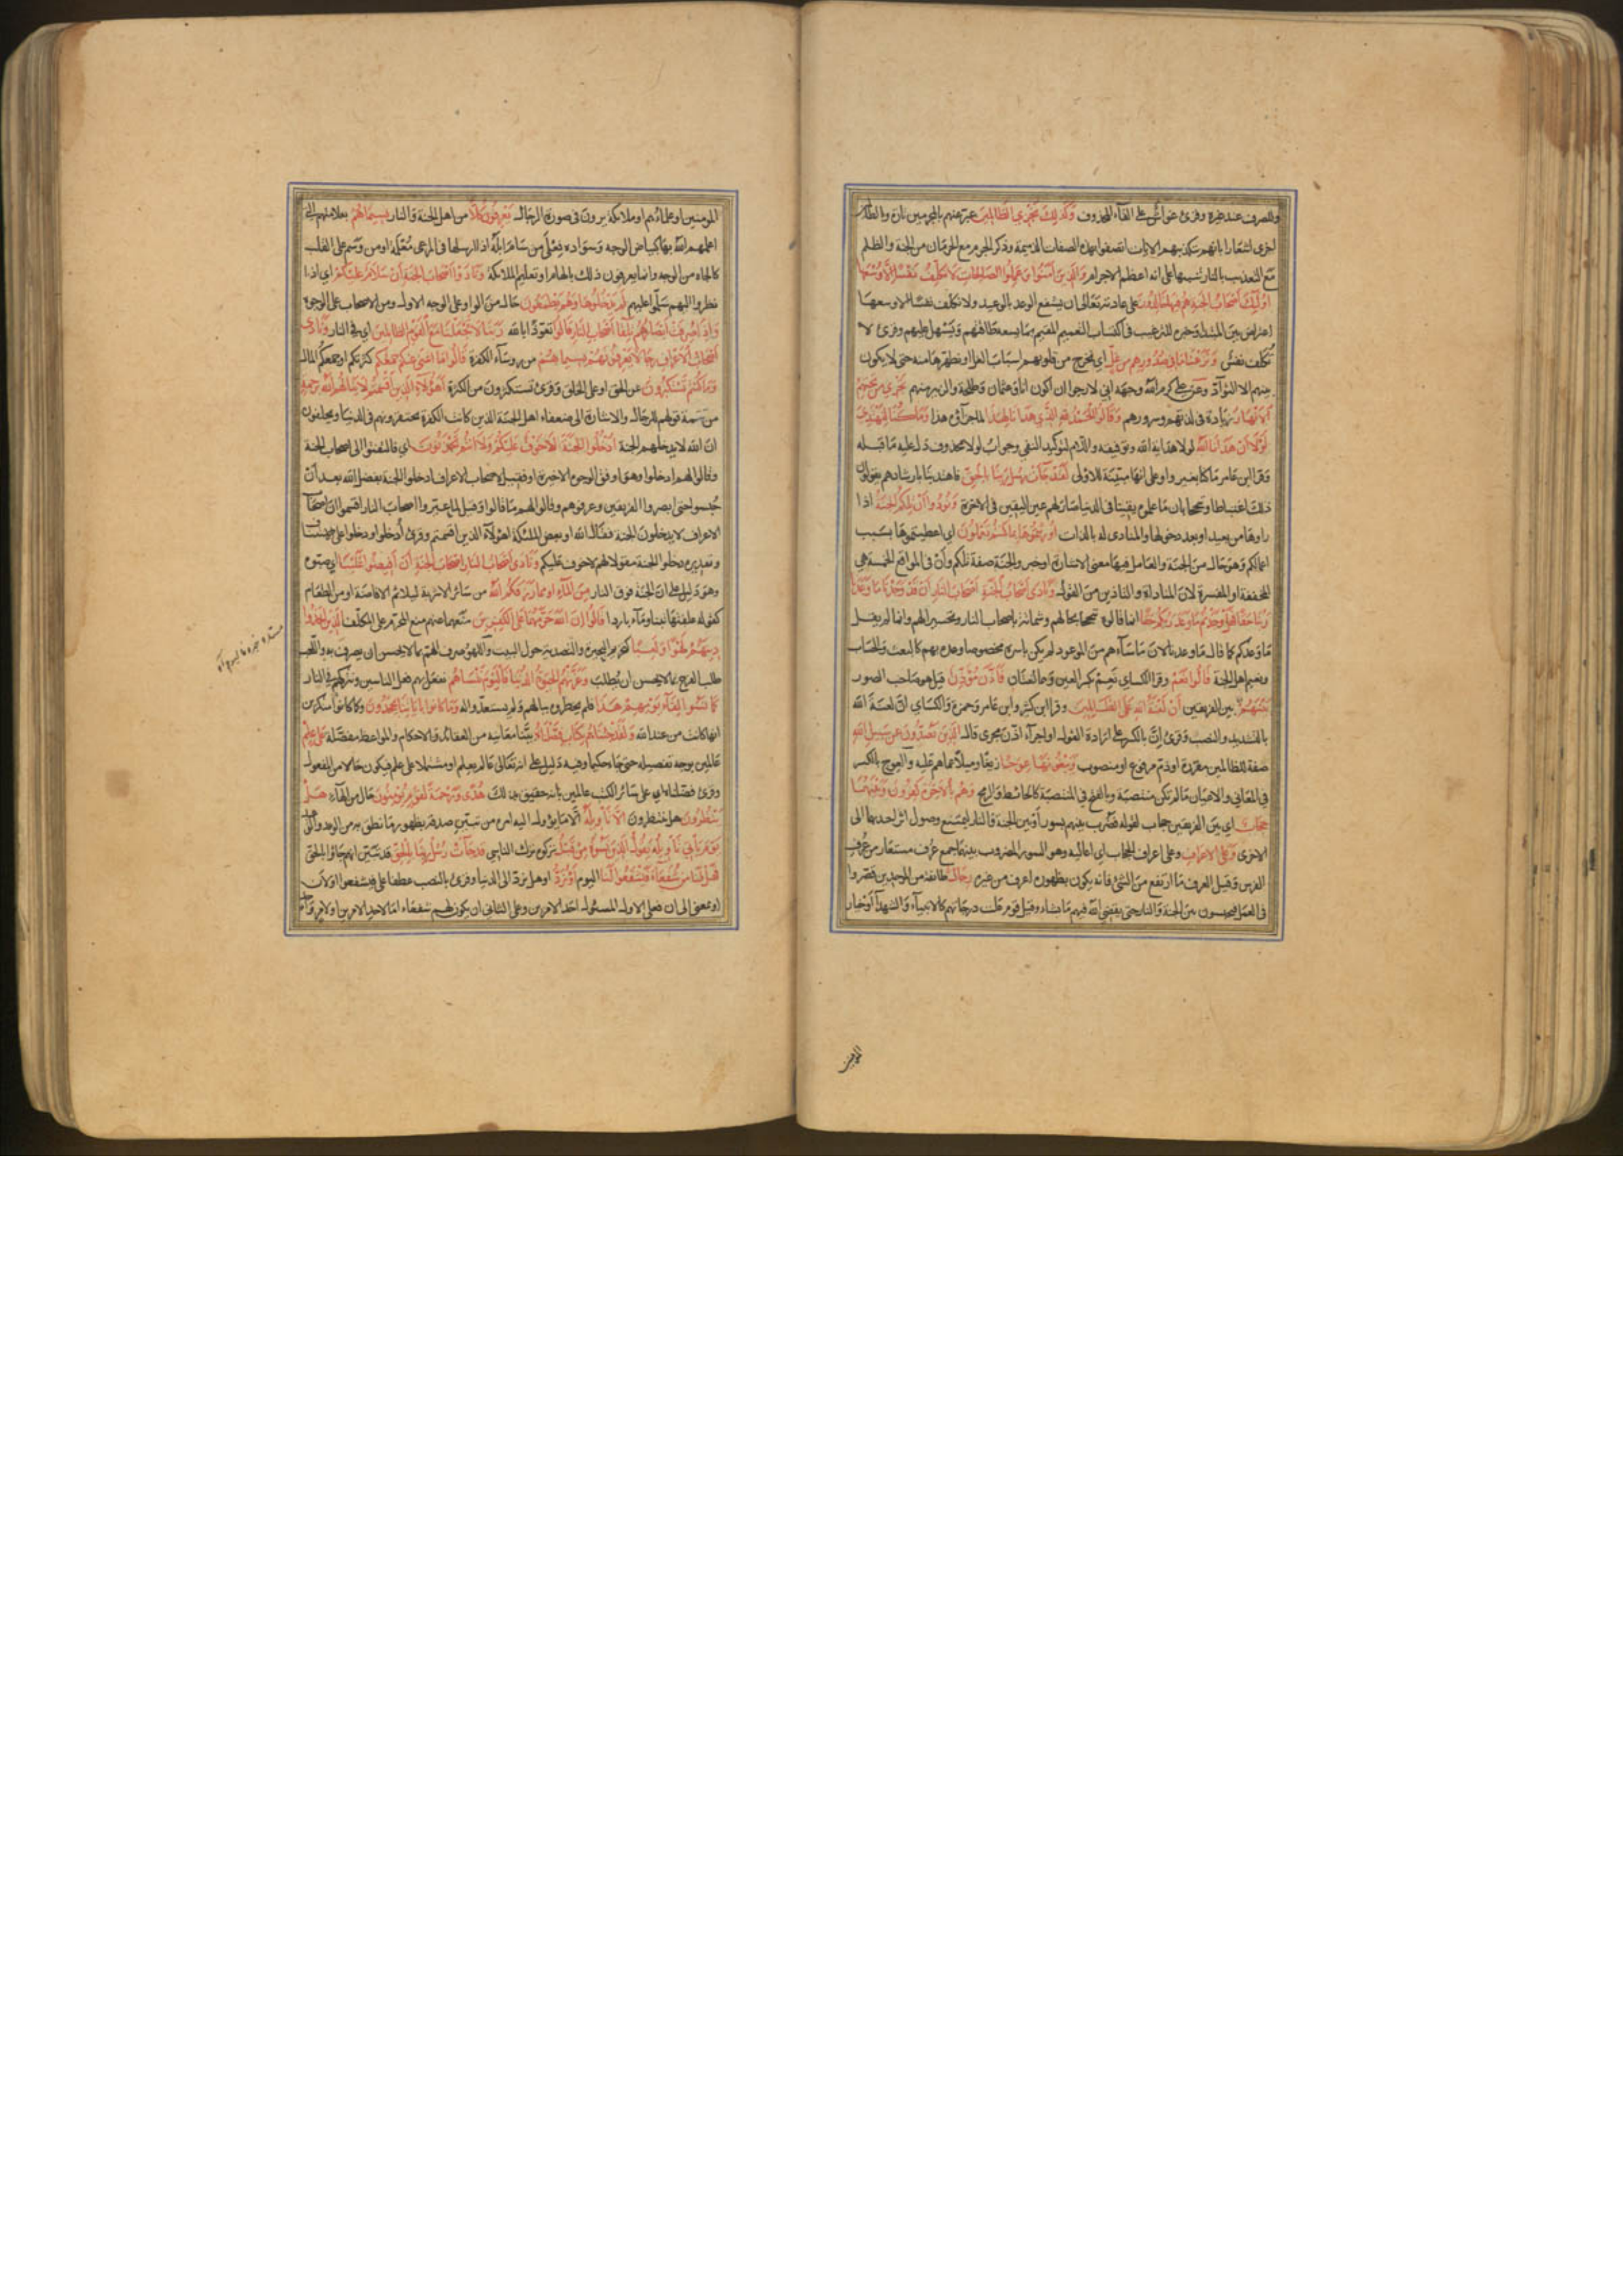 وللصرف عند غيره وقرئ غواش على الغاء المحذوف وكذلك نجزي الظالمين عبر عنهم بالمجرمين تارة وبالظالمين
اخرى اشعارا بانهم بتكذيبهم الايات اتصفوا بهذه الصفات الذميمة وذكر الجرم مع الحرمان من الجنة والظلم
مع التعذيب بالنار تنبيها على انه اعظم الاجرام والذين آمنوا وعملوا الصالحات لا نكلف نفسا الا وسعها
اولئك اصحاب الجنة هم فيها خالدون على عادته تعالى ان يشفع الوعد بالوعيد ولا نكلف نفسا الا وسعها
اعتراض بين المبتدا وخبره للترغيب في اكتساب النعيم المقيم بما يسعه طاقتهم ويسهل عليهم وقرئ لا
تكلف نفس ونزعنا ما في صدورهم من غل اي نخرج من قلوبهم اسباب الغل او نطهرها منه حتى لا يكون
بينهم الا التوآد وعن علي كرم الله وجهه اني لارجو ان اكون انا وعثمان وطلحة والزبير منهم تجري من تحتهم
الانهار زيادة في لذتهم وسرورهم وقالوا الحمد لله الذي هدانا لهذا لما جزآؤه هذا وما كنا لنهتدي
لولا ان هدانا الله لولا هداية الله وتوفيقه واللام لتوكيد النفي وجواب لولا محذوف دل عليه ما قبله
وقرا ابن عامر ما كنا بغير واو على انها مبينة للاولى لقد جآءت رسل ربنا بالحق فاهتدينا بارشادهم يقولون
ذلك اغتباطا وتبجحا بان ما علموه يقينا في الدنيا صار لهم عين اليقين في الاخرة ونودوا ان تلكم الجنة اذا
راوها من بعيد او بعد دخولها والمنادى له بالذات اورثتموها بما كنتم تعملون اي اعطيتموها بسبب
اعمالكم وهو حال من الجنة والعامل فيها معنى الاشارة او خبر والجنة صفة تلكم وان في المواقع الخمسة هي
المخففة او المفسرة لان المناداة والتاذين من القول ونادى اصحاب الجنة اصحاب النار ان قد وجدنا ما وعدنا
ربنا حقا فهل وجدتم ما وعد ربكم حقا انما قالوه تبجحا بحالهم وشماتة باصحاب النار وتحسيرا لهم وانما لم يقل
ما وعدكم كما قال ما وعدنا لان ما سآءهم من الموعود لم يكن باسره مخصوصا وعده بهم كالبعث والحساب
ونعيم اهل الجنة قالوا نعم وقرا الكسائي نعم بكسر العين وهما لغتان فاذن مؤذن قيل هو صاحب الصور
بينهم بين الفريقين ان لعنة الله على الظالمين وقرا ابن كثير وابن عامر وحمزة والكسائي ان لعنة الله
بالتشديد والنصب وقرئ ان بالكسر على ارادة القول او اجرآء اذن مجرى قال الذين يصدون عن سبيل الله
صفة للظالمين مقررة او ذم مرفوع او منصوب ويبغونها عوجا زيغا وميلا عما هم عليه والعوج بالكسر
في المعاني والاعيان ما لم تكن منتصبة وبالفتح في المنتصبة كالحائط والرمح وهم بالاخرة كفرون وبينهما
حجاب اي بين الفريقين حجاب لقوله فضرب بينهم بسور او بين الجنة والنار ليمنع وصول اثر احديهما الى
الاخرى وعلى الاعراف وعلى اعراف الحجاب اي اعاليه وهو السور المضروب بينهما جمع عرف مستعار من عرف
الفرس وقيل العرف ما ارتفع من الشئ فانه يكون بظهوره اعرف من غيره رجال طائفة من الموحدين قصروا
في العمل فيحبسون بين الجنة والنار حتى يقضي الله فيهم ما يشاء وقيل قوم علت درجاتهم كالانبيآء والشهدآ او خيار
المومنين
المومنين او علمائهم او ملائكة يرون في صورة الرجال يعرفون كلا من اهل الجنة والنار بسيماهم بعلامتهم التي
اعلمهم الله بها كبياض الوجه وسواده فعلى من سام ابله اذا ارسلها في المرعى معلمة او من وسم على القلب
كالجاه من الوجه وانما يعرفون ذلك بالالهام او تعليم الملائكة ونادوا اصحاب الجنة ان سلام عليكم اي اذا
نظروا اليهم سلموا عليهم لم يدخلوها وهم يطمعون حال من الواو على الوجه الاول ومن الاصحاب على الوجوه
واذا صرفت ابصارهم تلقآ اصحاب النار قالوا تعوذا بالله ربنا لا تجعلنا مع القوم الظالمين اي في النار ونادى
اصحاب الاعراف رجالا يعرفونهم بسيماهم من رؤساء الكفرة قالوا ما اغنى عنكم جمعكم كثرتكم او جمعكم المال
وما كنتم تستكبرون عن الحق او على الخلق وقرئ تستكثرون من الكثرة اهؤلآء الذين اقسمتم لا ينالهم الله برحمة
من تتمة قولهم للرجال والاشارة الى ضعفاء اهل الجنة الذين كانت الكفرة يحتقرونهم في الدنيا ويحلفون
ان الله لا يدخلهم الجنة ادخلوا الجنة لا خوف عليكم ولا انتم تحزنون اي فالتفتوا الى اصحاب الجنة
وقالوا لهم ادخلوا وهو اوفق الوجوه الاخيرة او فقيل لاصحاب الاعراف ادخلوا الجنة بفضل الله بعد ان
حبسوا حتى ابصروا الفريقين وعرفوهم وقالوا لهم ما قالوا وقيل لما عيروا اصحاب النار اقسموا ان اصحاب
الاعراف لا يدخلون الجنة فقال الله او بعض الملئكة اهؤلآء الذين اقسمتم وقرئ ادخلوا ودخلوا على الاستيناف
وتقديره دخلوا الجنة مقولا لهم لا خوف عليكم ونادى اصحاب النار اصحاب الجنة ان افيضوا علينا اي صبوه
وهو دليل على ان الجنة فوق النار من المآء او مما رزقكم الله من سائر الاشربة ليلائم الافاضة او من الطعام
كقوله علفتها تبنا ومآء باردا قالوا ان الله حرمهما على الكفرين منعهما عنهم منع المحرم عن المكلف الذين اتخذوا
دينهم لهوا ولعبا كتحريم البحيرة والتصدية حول البيت واللهو صرف الهم بما لا يحسن ان يصرف به واللعب
طلب الفرح بما لا يحسن ان يطلب وغرتهم الحيوة الدنيا فاليوم ننساهم نفعل بهم فعل الناسين ونتركهم في النار
كما نسوا لقآء يومهم هذا فلم يخطروه ببالهم ولم يستعدوا له وما كانوا باياتنا يجحدون وكما كانوا منكرين
انها كانت من عند الله ولقد جئناهم بكتاب فصلناه بينا معانيه من العقائد والاحكام والمواعظ مفصلة على علم
عالمين بوجه تفصيله حتى جاء حكيما وفيه دليل على انه تعالى عالم بعلم او مشتملا على علم فيكون حالا من المفعول
وقرئ فضلناه اي على سائر الكتب عالمين بانه حقيق بذلك هدى ورحمة لقوم يؤمنون حال من الهآء هل
ينظرون هل ينتظرون الا تاويله الا ما يؤول اليه امره من تبين صدقه بظهور ما نطق به من الوعد والوعيد
يوم ياتي تاويله يقول الذين نسوه من قبل تركوه ترك الناسي قد جآءت رسل ربنا بالحق قد تبين انهم جاؤا بالحق
فهل لنا من شفعآء فيشفعوا لنا اليوم او نرد او هل نرد الى الدنيا وقرئ بالنصب عطفا على فيشفعوا او لان
او بمعنى الى ان فعلى الاول المسئول احد الامرين وعلى الثاني ان يكون لهم شفعاء اما لاحد الامرين او لامر واحد